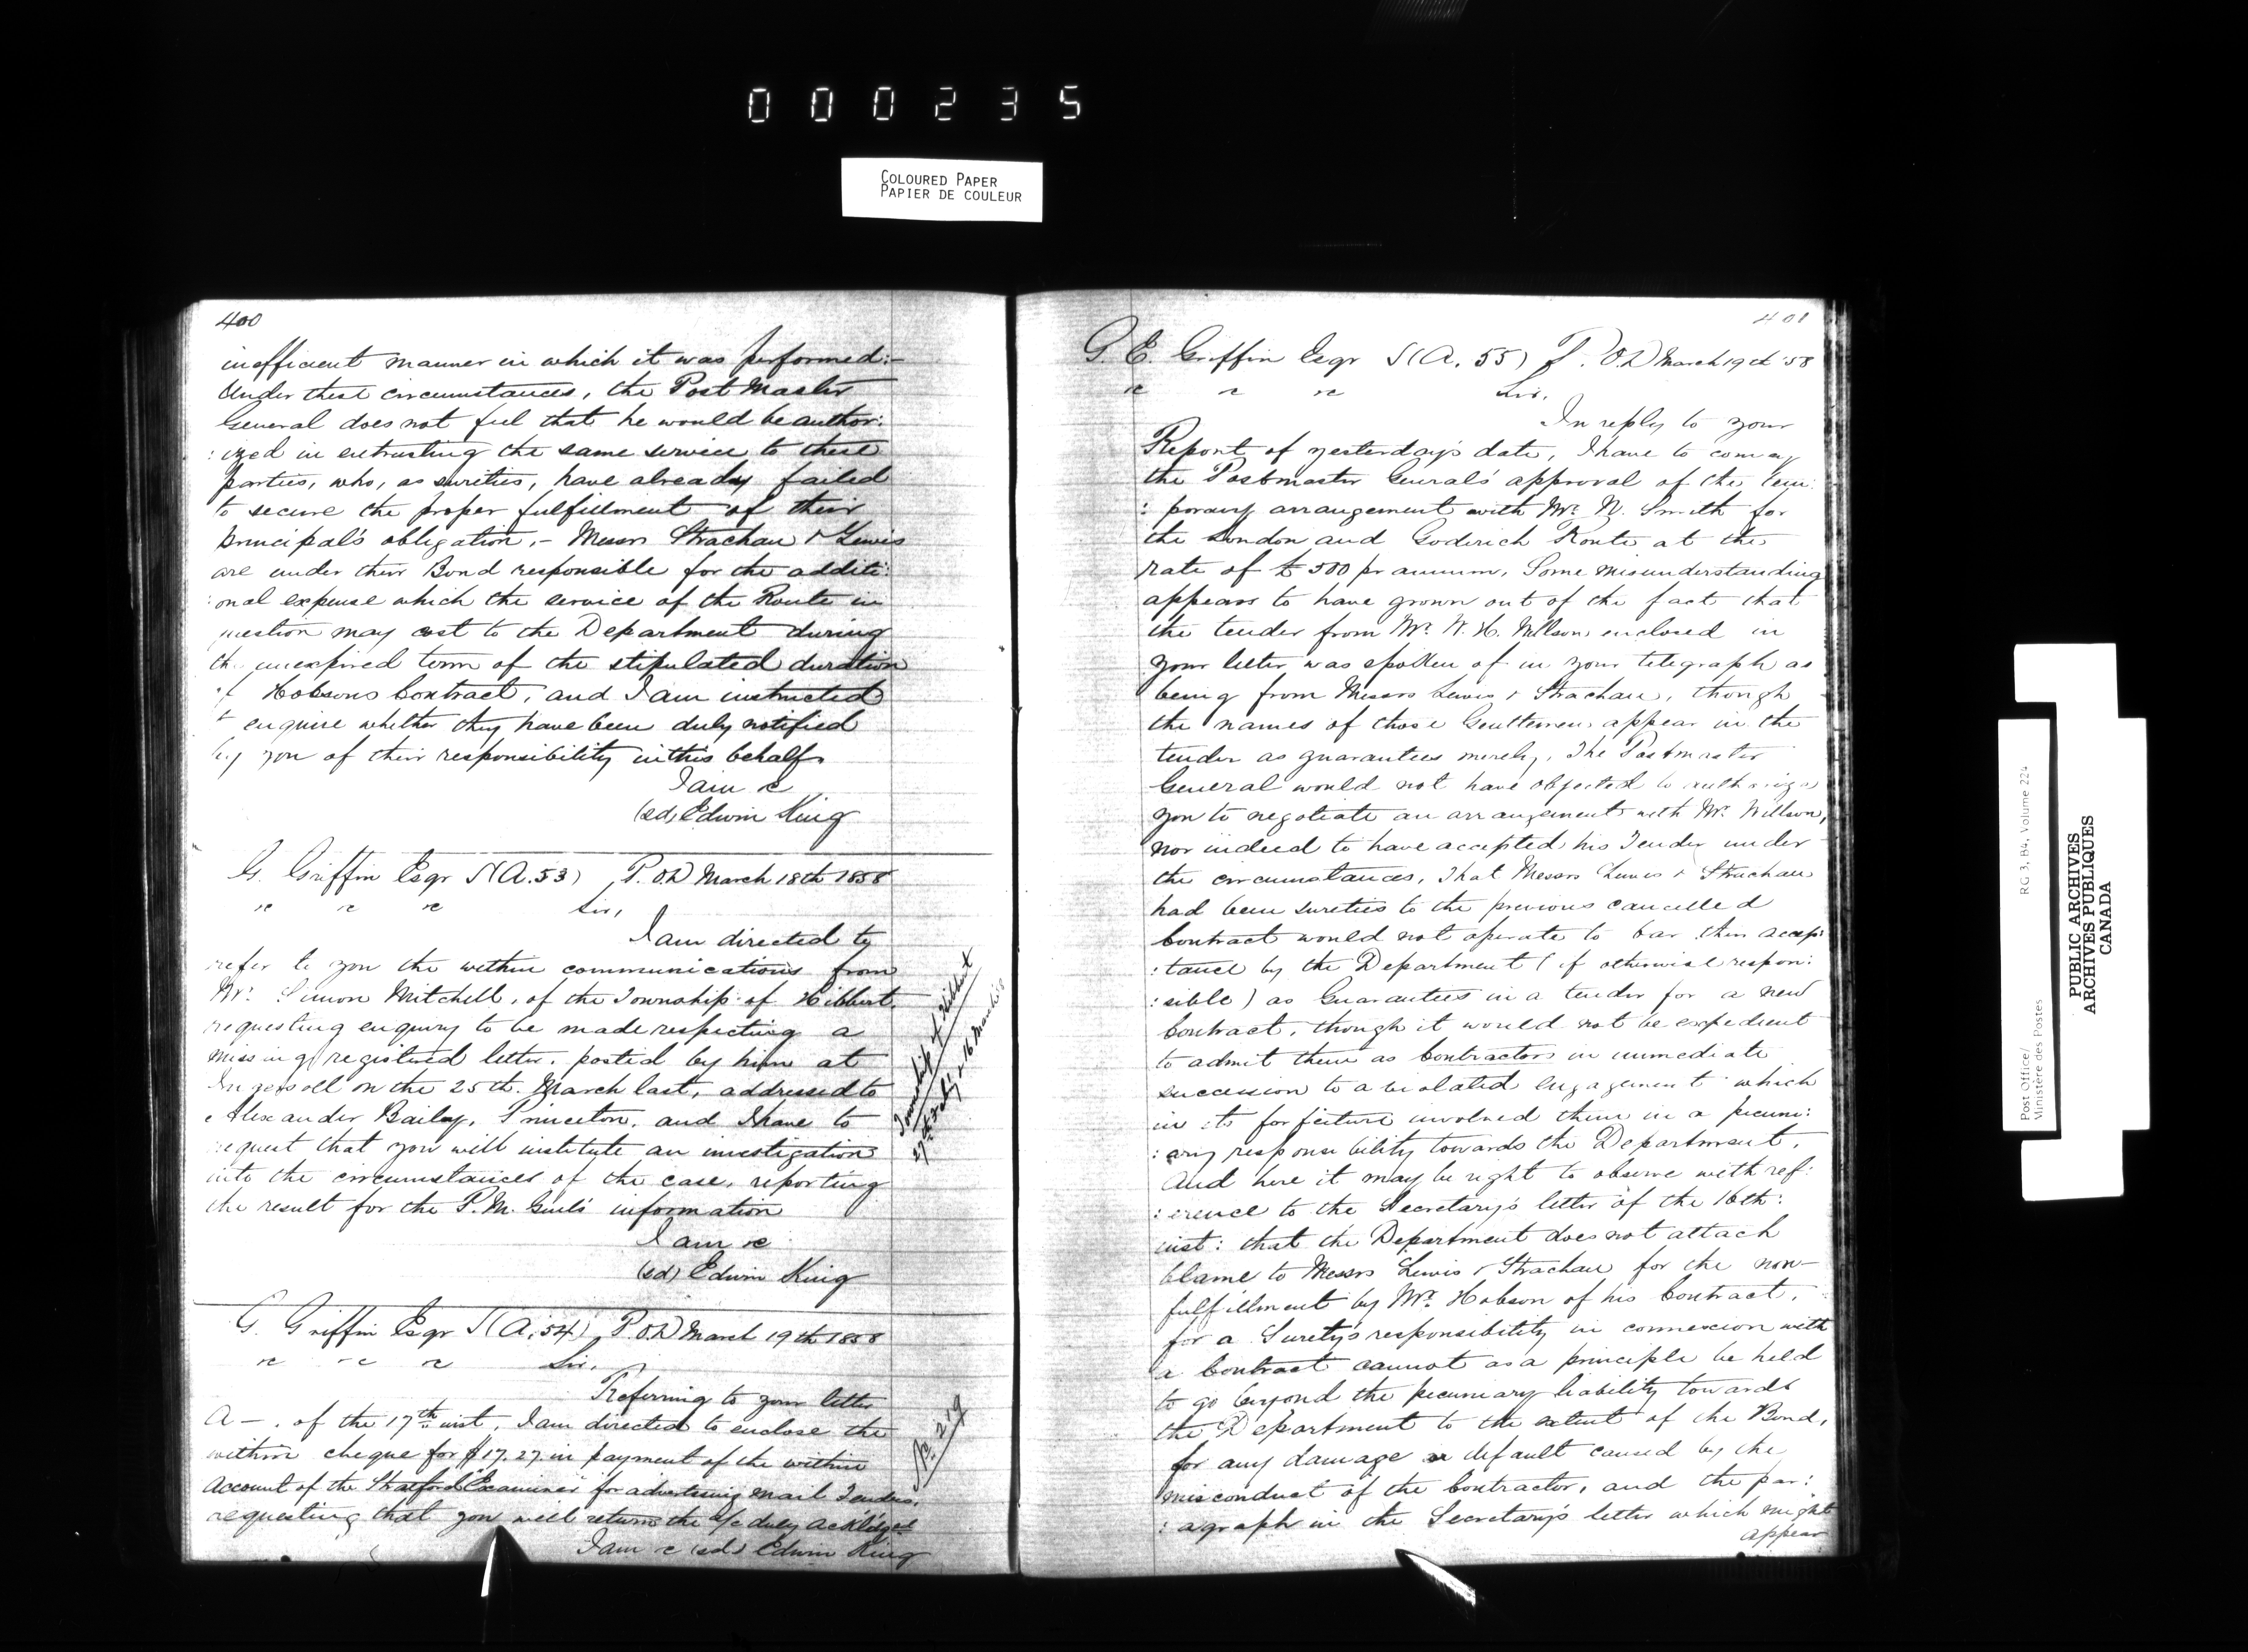 000235
COLOURED PAPER
PAPIER DE COULEUR
400
inefficient manner in which it was performed:-
Under these circumstances, the Post Master
General does not feel that he would be author:
:ized in entrusting the same service to these
parties, who, as sureties, have already failed
to secure the proper fulfillment of their
principal's obligation,- Messrs Strachan & Lewis
are under their Bond responsible for the additi:
:onal expense which the service of the Route in
question may cost to the Department during
the unexpired term of the stipulated duration
of Hobsons Contract, and I am instructed
to enquire whether they have been duly notified
by you of their responsibility in this behalf.
I am &c
(sd) Edwin King
G. Griffin Esqr S(A.53) P.O.D March 18th 1858
&c &c &c Sir,
I am directed to
refer to you the within communications from
Mr. Simon Mitchell, of the Township of Hibbert,
requesting enquiry to be made respecting a
missing registered letter, posted by him at
Ingersoll on the 25th. March last, addressed to
Alexander Bailey, Princeton, and I have to
request that you will institute an investigation
into the circumstances of the case, reporting
the result for the P.M. Genl's information
I am &c
(sd) Edwin King
Township of Hibbert
27th Feby & 16 March 58
G. Griffin Esqr S(A.54) P.O.D March 19th 1858
&c &c &c Sir,
Referring to your letter
A — . of the 17th inst, I am directed to enclose the
within cheque for $17.27 in payment of the within
Account of the Stratford Examiner for advertising mail Tenders,
requesting that you will return the a/c duly ackldged
I am &c (sd) Edwin King
401
G. E. Griffin Esqr S(A. 55) P.O.D March 19th '58
&c &c &c Sir,
In reply to your
Report of yesterday's date, I have to convey
the Postmaster General's approval of the tem:
:porary arrangement with Mr. N. Smith for
the London and Goderich Route at the
rate of £500 pr annum, Some misunderstanding
appears to have grown out of the fact that
the tender from Mr. W. H. Willson enclosed in
your letter was spoken of in your telegraph as
being from Messrs Lewis & Strachan, though
the names of those Gentlemen appear in the
tender as guarantees merely, The Postmaster
General would not have objected to authorize
you to negotiate an arrangement with Mr. Willson,
nor indeed to have accepted his Tender under
the circumstances, That Messrs Lewis & Strachan
had been sureties to the previous cancelled
Contract would not operate to bar their accep:
:tance by the Department (if otherwise respon:
:sible) as Guarantees in a tender for a new
Contract, though it would not be expedient
to admit them as Contractors in immediate
succession to a violated engagement which
in its forfeiture involved them in a pecuni:
:ary responsibility towards the Department.
And here it may be right to observe with ref:
:erence to the Secretary's letter of the 16th:
inst: that the Department does not attach
blame to Messrs Lewis & Strachan for the non-
fulfillment by Mr. Hobson of his Contract,
for a Surety's responsibility in connexion with
a Contract cannot as a principle be held
to go beyond the pecuniary liability towards
the Department to the extent of the Bond,
for any damage or default caused by the
misconduct of the Contractor, and the par:
:agraph in the Secretary's letter which might
appear
Post Office/
Ministère des Postes
RG 3, B4, Volume 224
PUBLIC ARCHIVES
ARCHIVES PUBLIQUES
CANADA